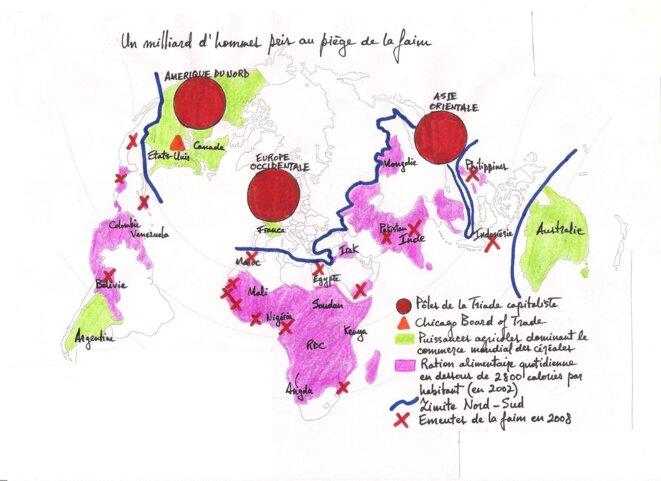 Un milliard d'hommes pris au piège de la faim
AMÉRIQUE DU NORD
ASIE
ORIENTALE
Canada
Etats-Unis
EUROPE
OCCIDENTALE
Mongolie
Philippines
Colombie
Venezuela
France
Pakistan
Inde
Indonésie
Australie
Irak
Maroc
Egypte
Bolivie
Mali
Soudan
Nigéria
Kenya
RDC
Argentine
Angola
Pôles de la Triade capitaliste
Chicago Board of Trade
Puissances agricoles dominant le
commerce mondial des céréales
Ration alimentaire quotidienne
en dessous de 2800 calories par
habitant (en 2002)
Limite Nord-Sud
Emeutes de la faim en 2008